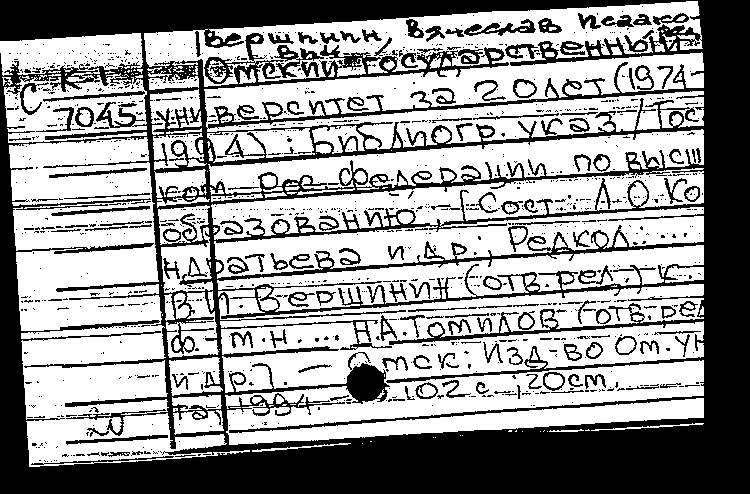 Вершинин, Вячеслав Исаако-
вич ред.
С К I Омский государственный
7045 университет за 20 лет (1974-
1994) : Библиогр. указ. / Гос.
ком. Рос. федерации по высш
образованию ; [Сост.: Л.О. Ко
ндратьева и др.; Редкол.: ...
В.И. Вершинин (отв. ред.) к.
ф.-м.н. ... Н.А. Томилов (отв. ред
и др.]. — Омск: Изд-во Ом. ун
та, 1994. — 102 с ; 20 см.
20